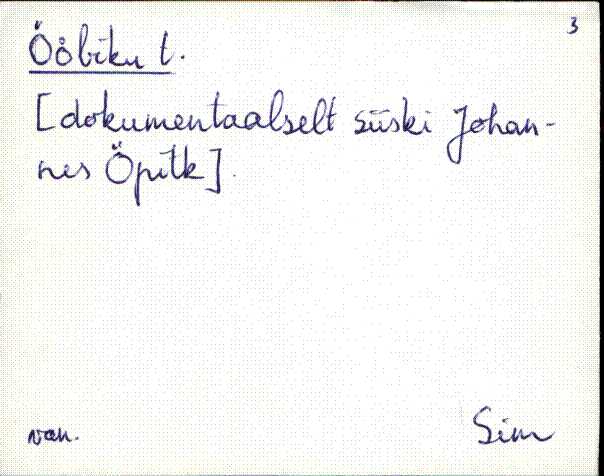 3
Ööbiku t.
[dokumentaalselt siiski Johan-
nes Öpik]
van.
Sim